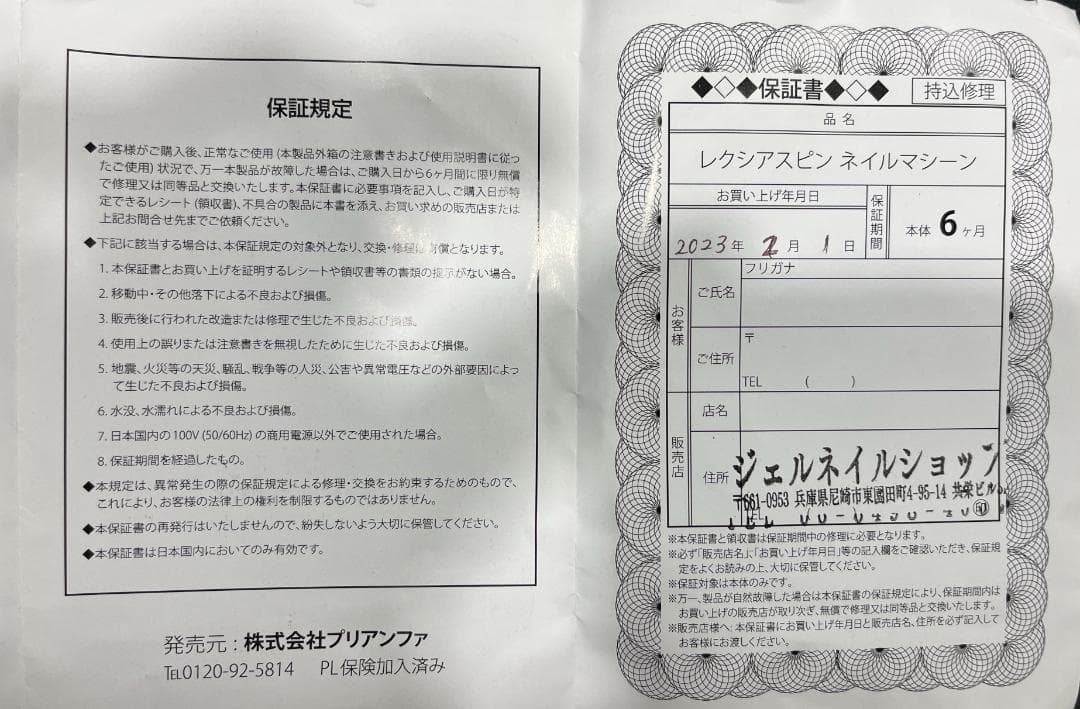 保証規定
◆お客様がご購入後、正常なご使用(本製品外箱の注意書きおよび使用説明書に従っ
たご使用)状況で、万一本製品が故障した場合は、ご購入日から6ヶ月間に限り無償
で修理又は同等品と交換いたします。本保証書に必要事項を記入し、ご購入日が特
定できるレシート(領収書)、不具合の製品に本書を添え、お買い求めの販売店または
上記お問合せ先までご依頼ください。
◆下記に該当する場合は、本保証規定の対象外となり、交換・修理は有償となります。
1. 本保証書とお買い上げを証明するレシートや領収書等の書類の提示がない場合。
2. 移動中・その他落下による不良および損傷。
3. 販売後に行われた改造または修理で生じた不良および損傷。
4. 使用上の誤りまたは注意書きを無視したために生じた不良および損傷。
5. 地震、火災等の天災、騒乱、戦争等の人災、公害や異常電圧などの外部要因によっ
て生じた不良および損傷。
6. 水没、水濡れによる不良および損傷。
7. 日本国内の100V (50/60Hz) の商用電源以外でご使用された場合。
8. 保証期間を経過したもの。
◆本規定は、異常発生の際の保証規定による修理・交換をお約束するためのもので、
これにより、お客様の法律上の権利を制限するものではありません。
◆本保証書の再発行はいたしませんので、紛失しないよう大切に保管してください。
◆本保証書は日本国内においてのみ有効です。
発売元:株式会社プリアンファ
TEL0120-92-5814 PL保険加入済み
◆◇◆保証書◆◇◆ 持込修理
品名
レクシアスピン ネイルマシーン
お買い上げ年月日
2023年 2月 1日
保証期間
本体 6ヶ月
お客様
フリガナ
ご氏名
ご住所
〒
TEL ( )
販売店
店名
住所
ジェルネイルショップ
〒661-0953 兵庫県尼崎市東園田町4-95-14 共栄ビル
TEL
※本保証書と領収書は保証期間中の修理に必要となります。
※必ず「販売店名」、「お買い上げ年月日」等の記入欄をご確認いただき、保証規
定をよくお読みの上、大切に保管してください。
※保証対象は本体のみです。
※万一、製品が自然故障した場合は本保証書の保証規定により、保証期間内は
お買い上げの販売店が取り次ぎ、無償で修理又は同等品と交換いたします。
※販売店様へ:本保証書にお買い上げ年月日と販売店名、住所を必ず記入して
お客様にお渡しください。